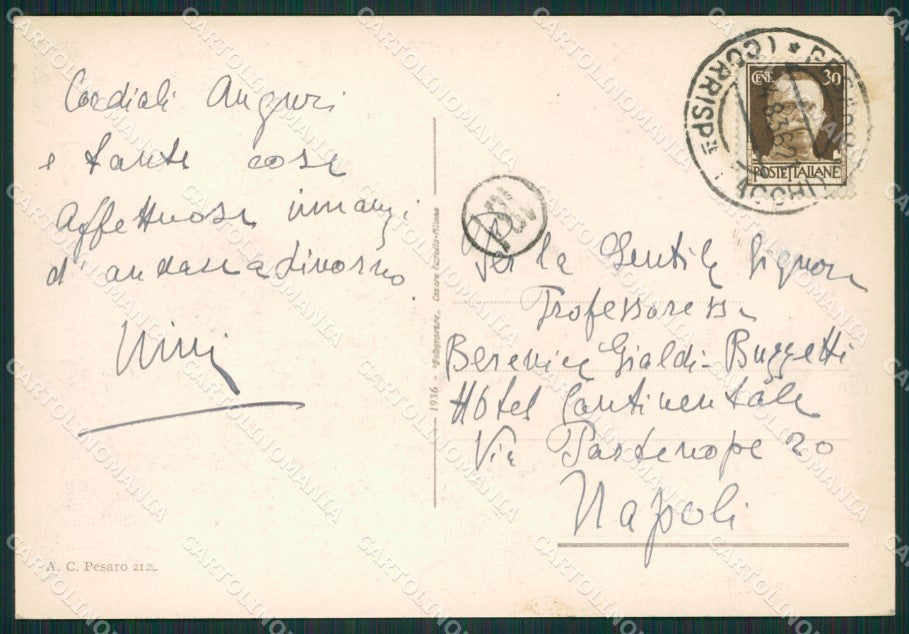 Cordiali Auguri
e tante cose
Affettuose innanzi
d'andare a Livorno
Nini
A. C. Pesaro 212.
1936 -
CENT. 30
POSTE ITALIANE
(CORRISP.
PACCHI)
Per la Gentile Signora
Professoressa
Berenice Gialdi-Buzzetti
Hôtel Continentale
Via Partenope 20
Napoli
CARTOLINOMANIA